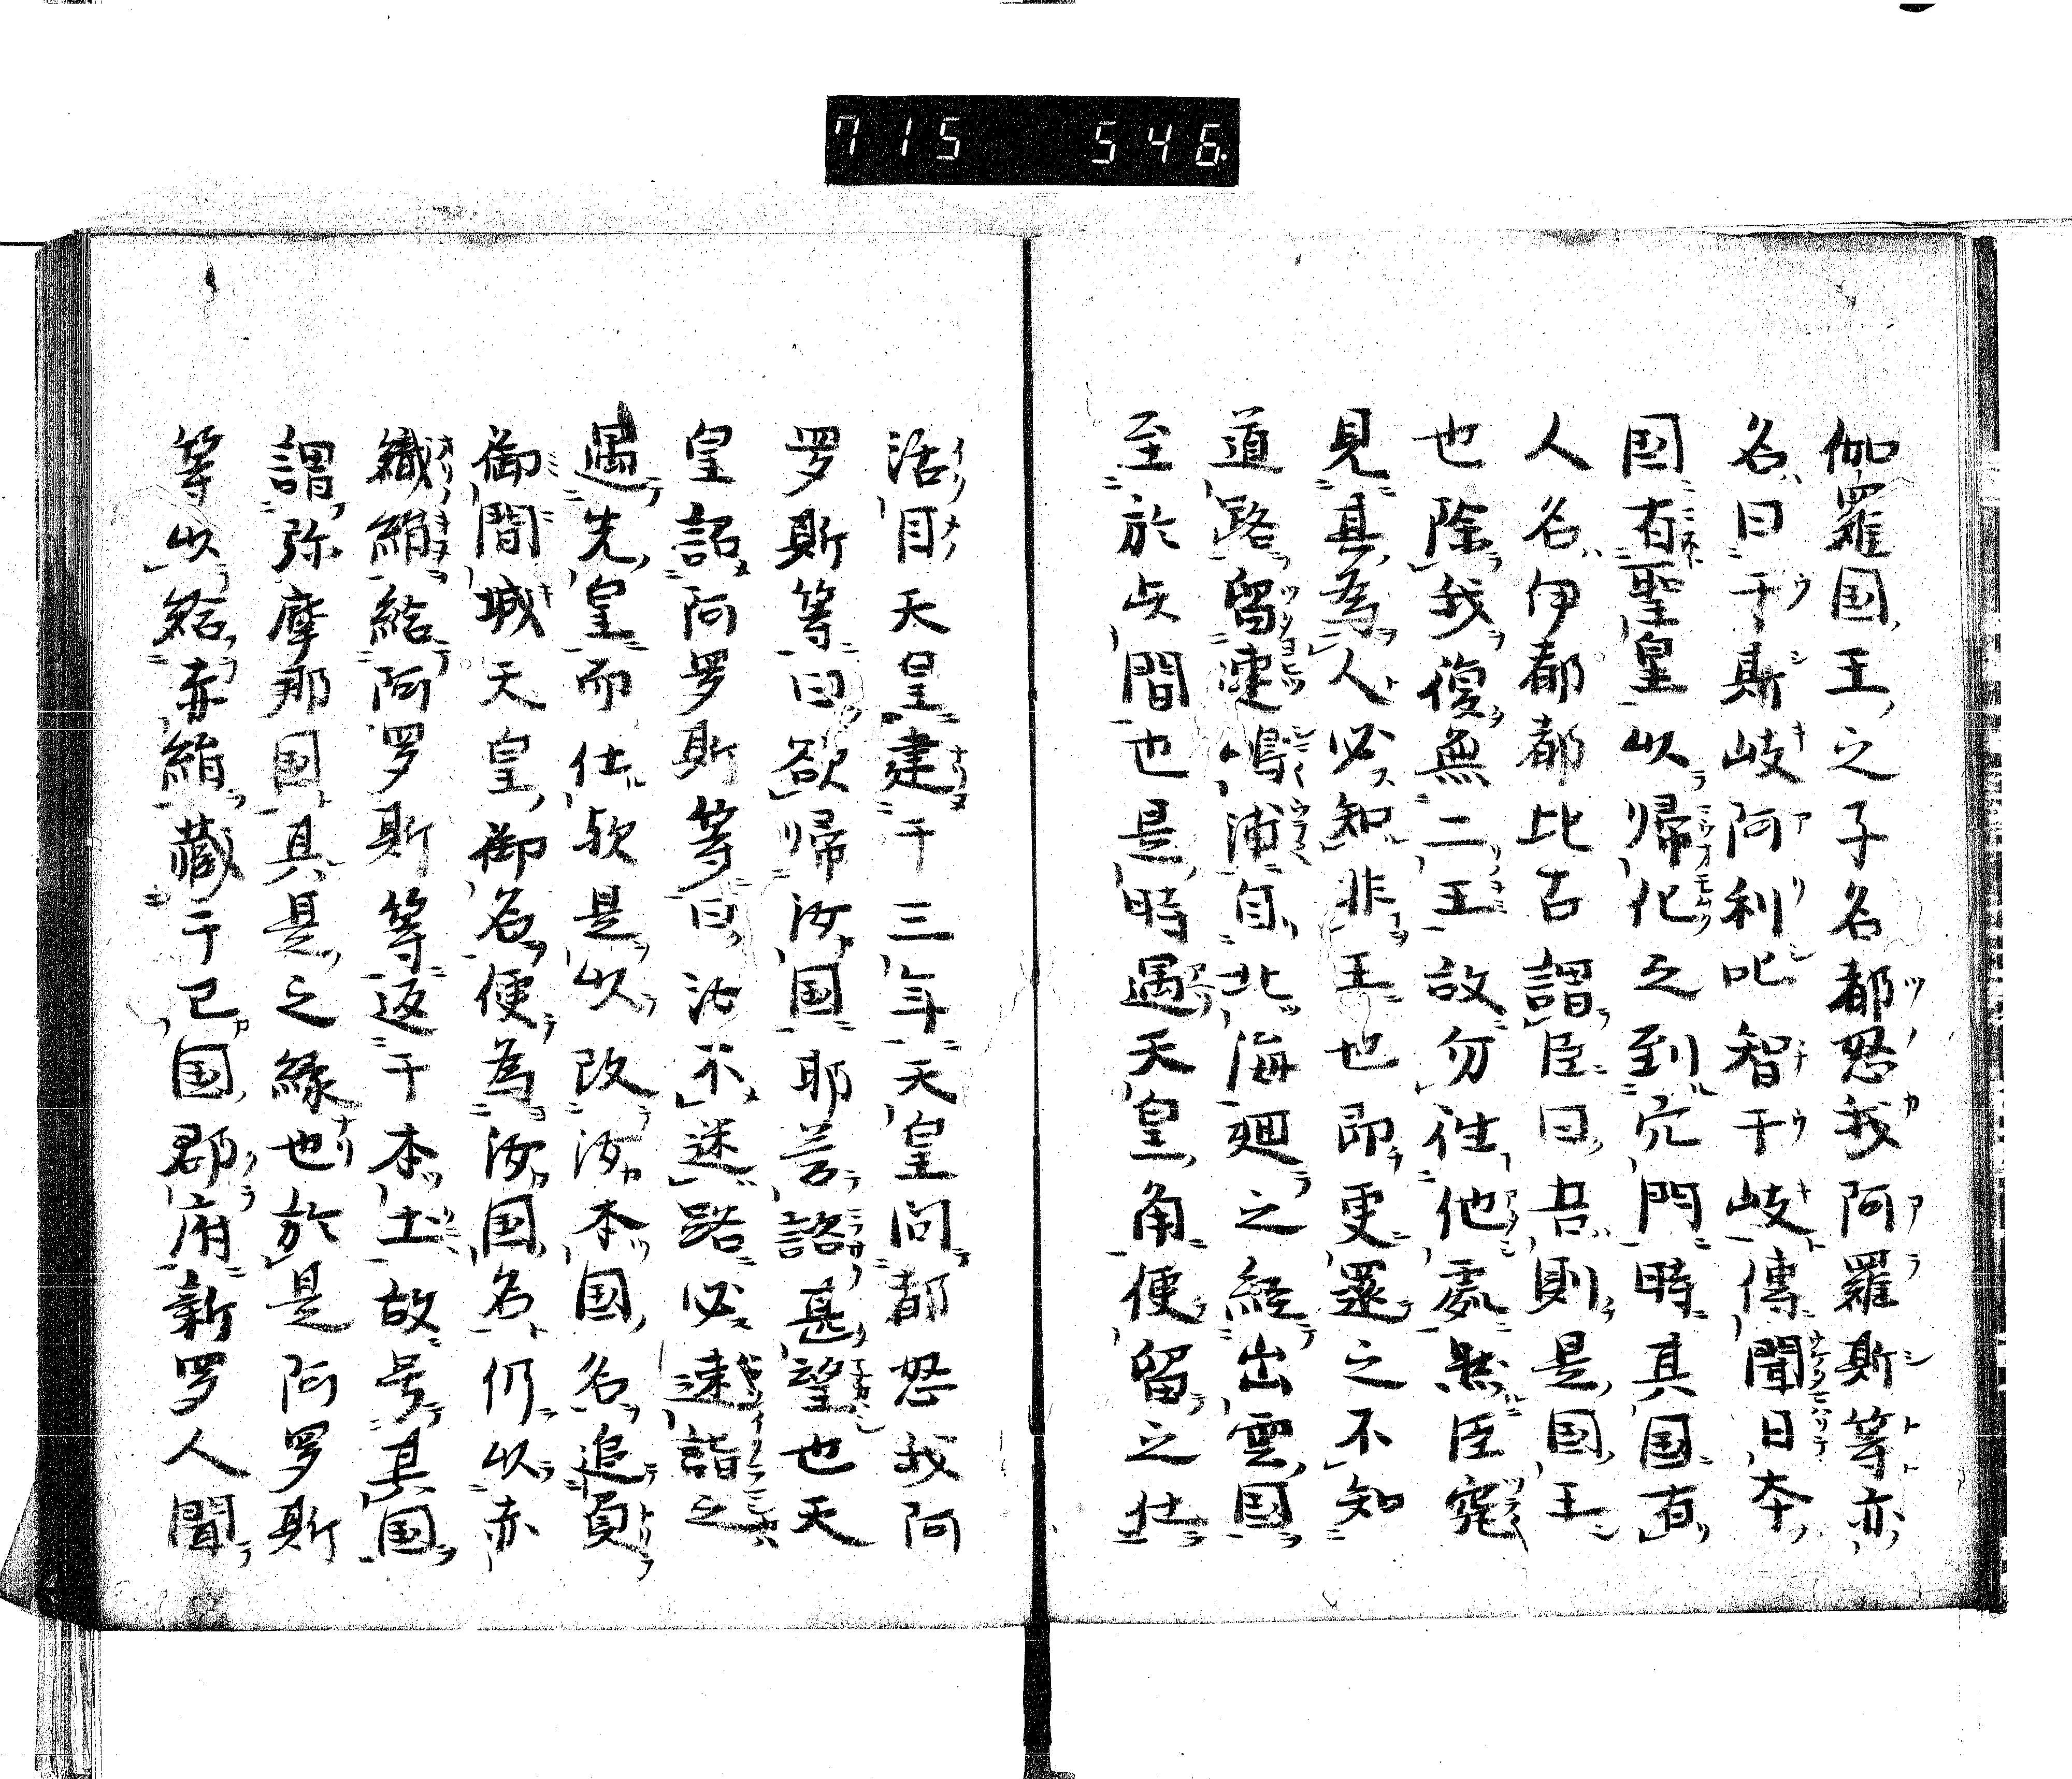 715 546
伽羅国王之子名都怒我阿羅斯等亦
名曰于斯岐阿利叱智干岐傳聞日本
国有聖皇以帰化之到穴門時其国有
人名伊都都比古謂臣曰吾則是国王
也除我復無二王故勿往他處然臣究
見其為人必知非王也即更還之不知
道路留連嶋浦自北海廻之経出雲国
至於此間也是時遇天皇崩便留之仕
活目天皇建于三年天皇問都怒我阿
罗斯等曰欲帰汝国耶答諮甚望也天
皇詔阿罗斯等曰汝不迷路必速詣之
遇先皇而仕欤是以改汝本国名追負
御間城天皇御名便為汝国名仍以赤
織絹給阿罗斯等返于本土故号其国
謂弥摩那国其是之縁也於是阿罗斯
等以給赤絹藏于已国郡府新罗人聞